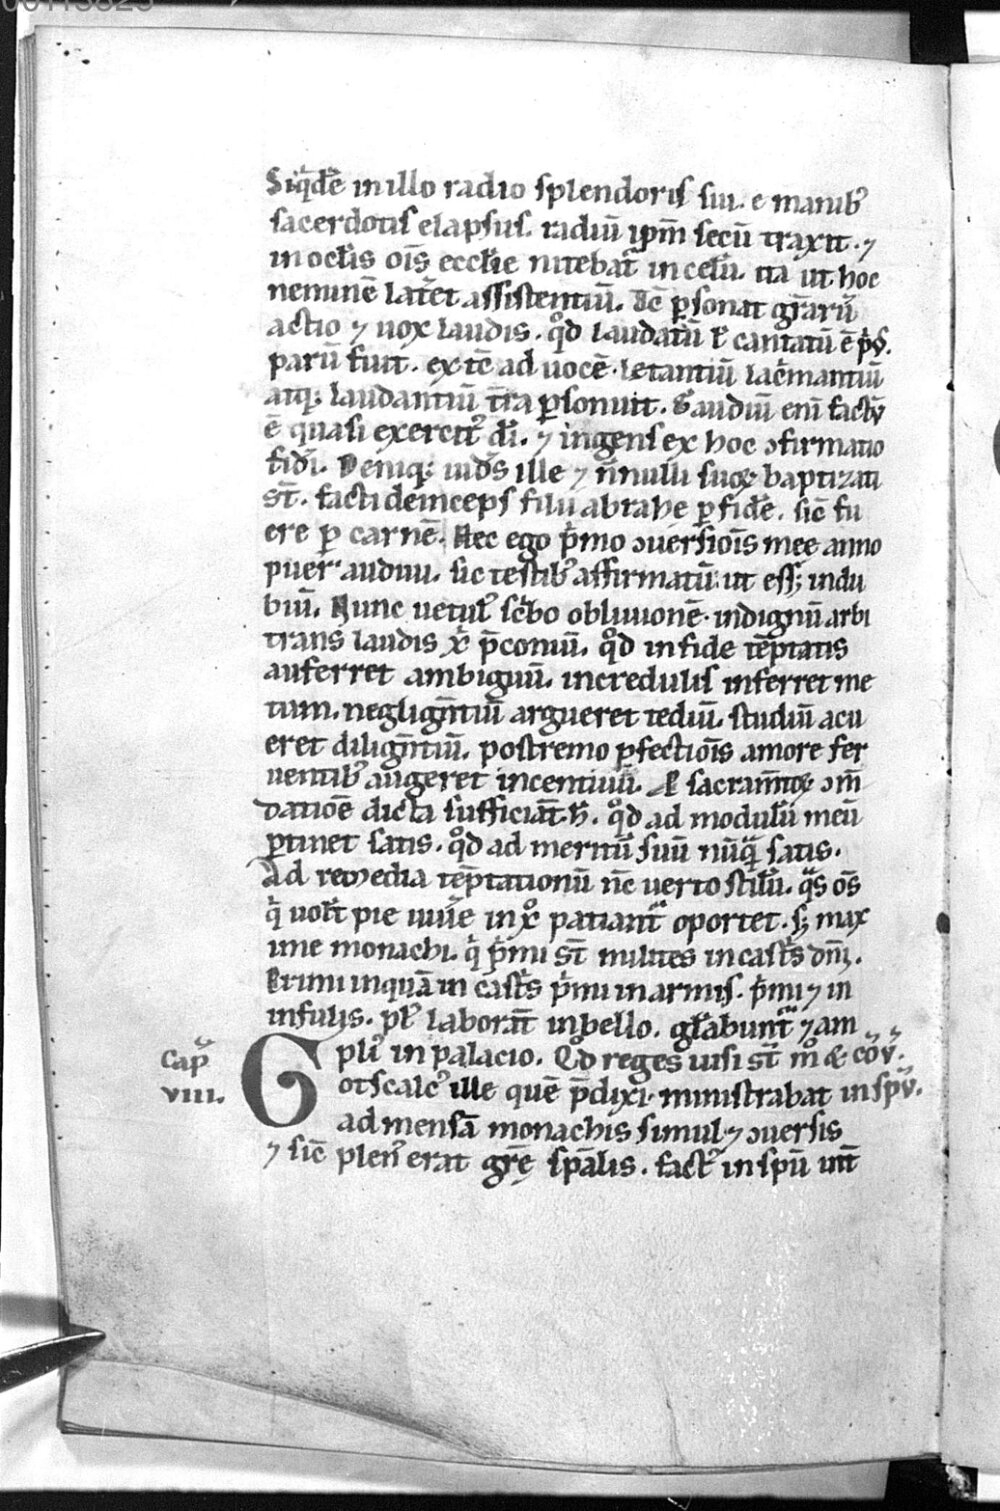 Siq̇dē in illo radio splendoris sui. e manib᷒
sacerdotis elapsus. radiū ip̄m secū traxit. ⁊
in ocl̄is oīs eccl̄ie nitebat᷒ in celū. ita ut hoc
neminē lat̄et assistentiū. Tc̄ ꝑsonat gr̄arū
actio ⁊ uox laudis. qd̊ laudatū ł cantatū ē p̄᷒
parū fuit. ex tc̄ ad uocē letantiū lac̄mantiū
atq; laudantiū t̄ra ꝑsonuit. Gaudiū eni factū
ē quasi exercit᷒ dī. ⁊ ingens ex hoc ↄfirmatio
fidi. Deniq; iud̄s ille ⁊ n̄nulli suoꝝ baptizati
st̄. facti deinceps filii abrahe ꝑ fidē. sic̄ fu
ere ꝑ carnē. Hec ego p̄mo ↄuersiōis mee anno
puer audiui. sic testib᷒ affirmatū ut ess; indu
biū. Nunc uetul᷒ sc̄bo obliuionē. indignū arbi
trans laudis xp̄i p̄coniū. qd̊ in fide tēptatis
auferret ambiguū. incredulis inferret me
tum. negliḡntiū argueret tediū. studiū acu
eret diliḡntiū. postremo ꝑfectiōis amore fer
uentib᷒ augeret incentiuū. De sacram̄toꝝ ↄm̄
datiōe dicta sufficiāt h̄. qd̊ ad modulū meū
ꝑtinet satis. qd̊ ad meritū suū nūq̄ satis.
Ad remedia tēptationū nc̄ uerto stilū. q̄s om̄s
q̇ uolt̄ pie uiuē in xp̊ patiant᷒ oportet. s; max
ime monachi. q̇ p̄mi st̄ milites in cast̄s dn̄i.
Primi inquā in cast̄s p̄mi in armis. p̄mi ⁊ in
infulis. pl᷒ laborāt in bello. gl̄abunt᷒ ⁊ am
pli᷒ in palacio. Qd̊ reges uisi st̄ mo᷒ & cōu᷒.
Cap̄
viii.
Gotscalc᷒ ille quē p̄dixi. ministrabat in spū.
ad mensā monachis simul ⁊ ↄuersis
⁊ sic̄ plen᷒ erat gr̄e sp̄alis. fact᷒ in spū uīt